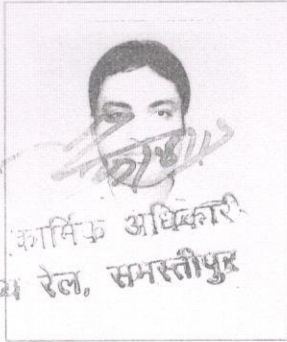 कार्मिक अधिकारी
रेल, समस्तीपुर